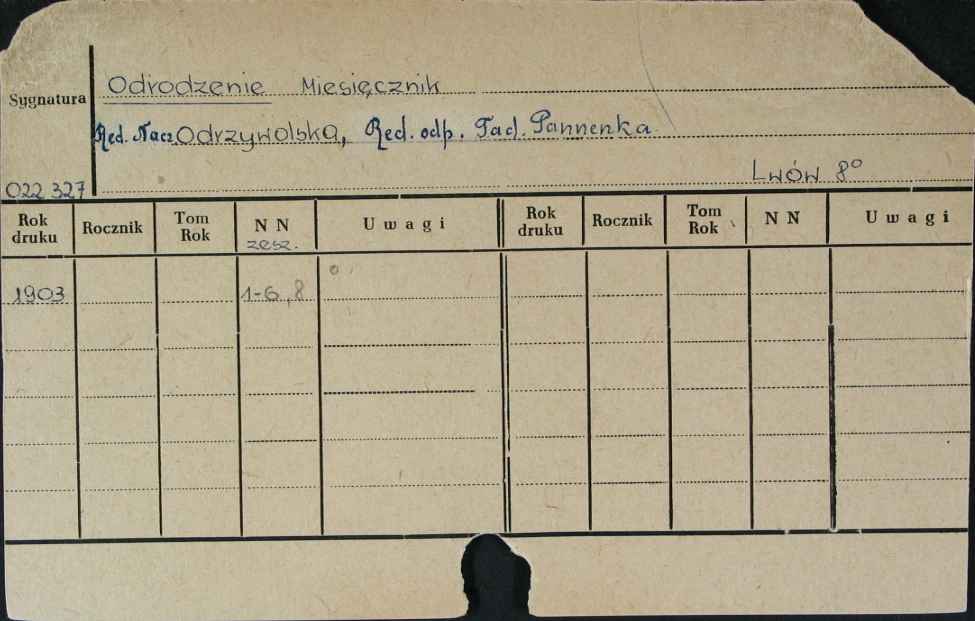 Odrodzenie Miesięcznik
Sygnatura
Red. Nacz. Odrzywolska, Red. odp. Tad. Pannenka
Lwów 8°
022 327
Rok druku Rocznik Tom Rok N N zesz. Uwagi Rok druku Rocznik Tom Rok N N Uwagi
1903 1-6, 8